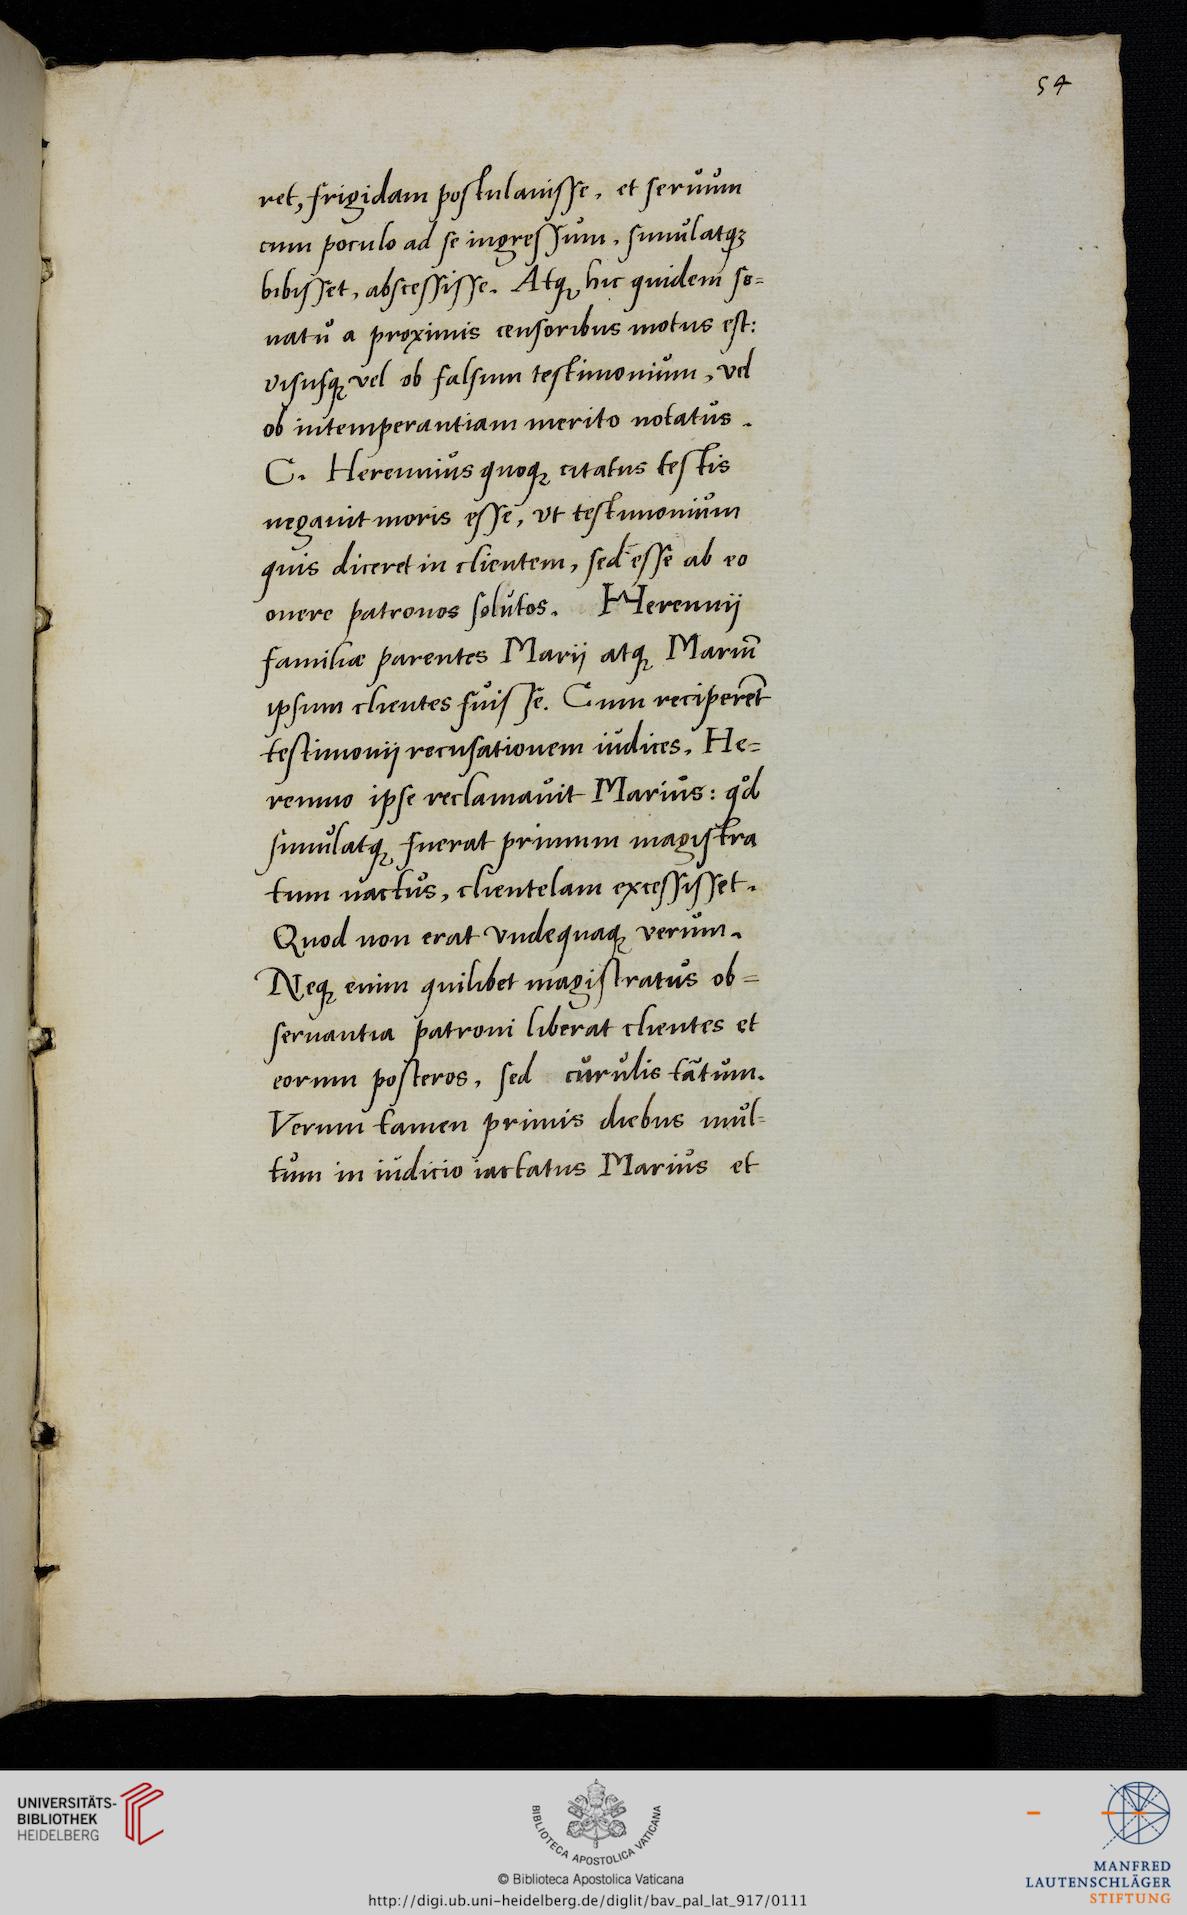 54
ret, frigidam postulauisse, et seruum
cum poculo ad se ingressum, simulatqꝫ
bibisset, abscessisse. Atqꝫ hic quidem se=
natū a proximis censoribus motus est:
visusqꝫ vel ob falsum testimonium, vel
ob intemperantiam merito notatus.
C. Herennius quoqꝫ citatus testis
negauit moris esse, vt testimonium
quis diceret in clientem, sed esse ab eo
onere patronos solutos. Herennij
familiæ parentes Marii atqꝫ Mariū
ipsum clientes fuisse. Cum reciperēt
testimonij recusationem iudices, He=
rennio ipse reclamauit Marius: qd
simulatqꝫ fuerat primum magistra
tum nactus, clientelam excessisset.
Quod non erat vndequaqꝫ verum.
Neqꝫ enim quilibet magistratus ob=
seruantia patroni liberat clientes et
eorum posteros, sed curulis tātum.
Verum tamen primis diebus mul=
tum in iudicio iactatus Marius et
UNIVERSITÄTS-
BIBLIOTHEK
HEIDELBERG
BIBLIOTECA APOSTOLICA VATICANA
© Biblioteca Apostolica Vaticana
http://digi.ub.uni-heidelberg.de/diglit/bav_pal_lat_917/0111
MANFRED
LAUTENSCHLÄGER
STIFTUNG